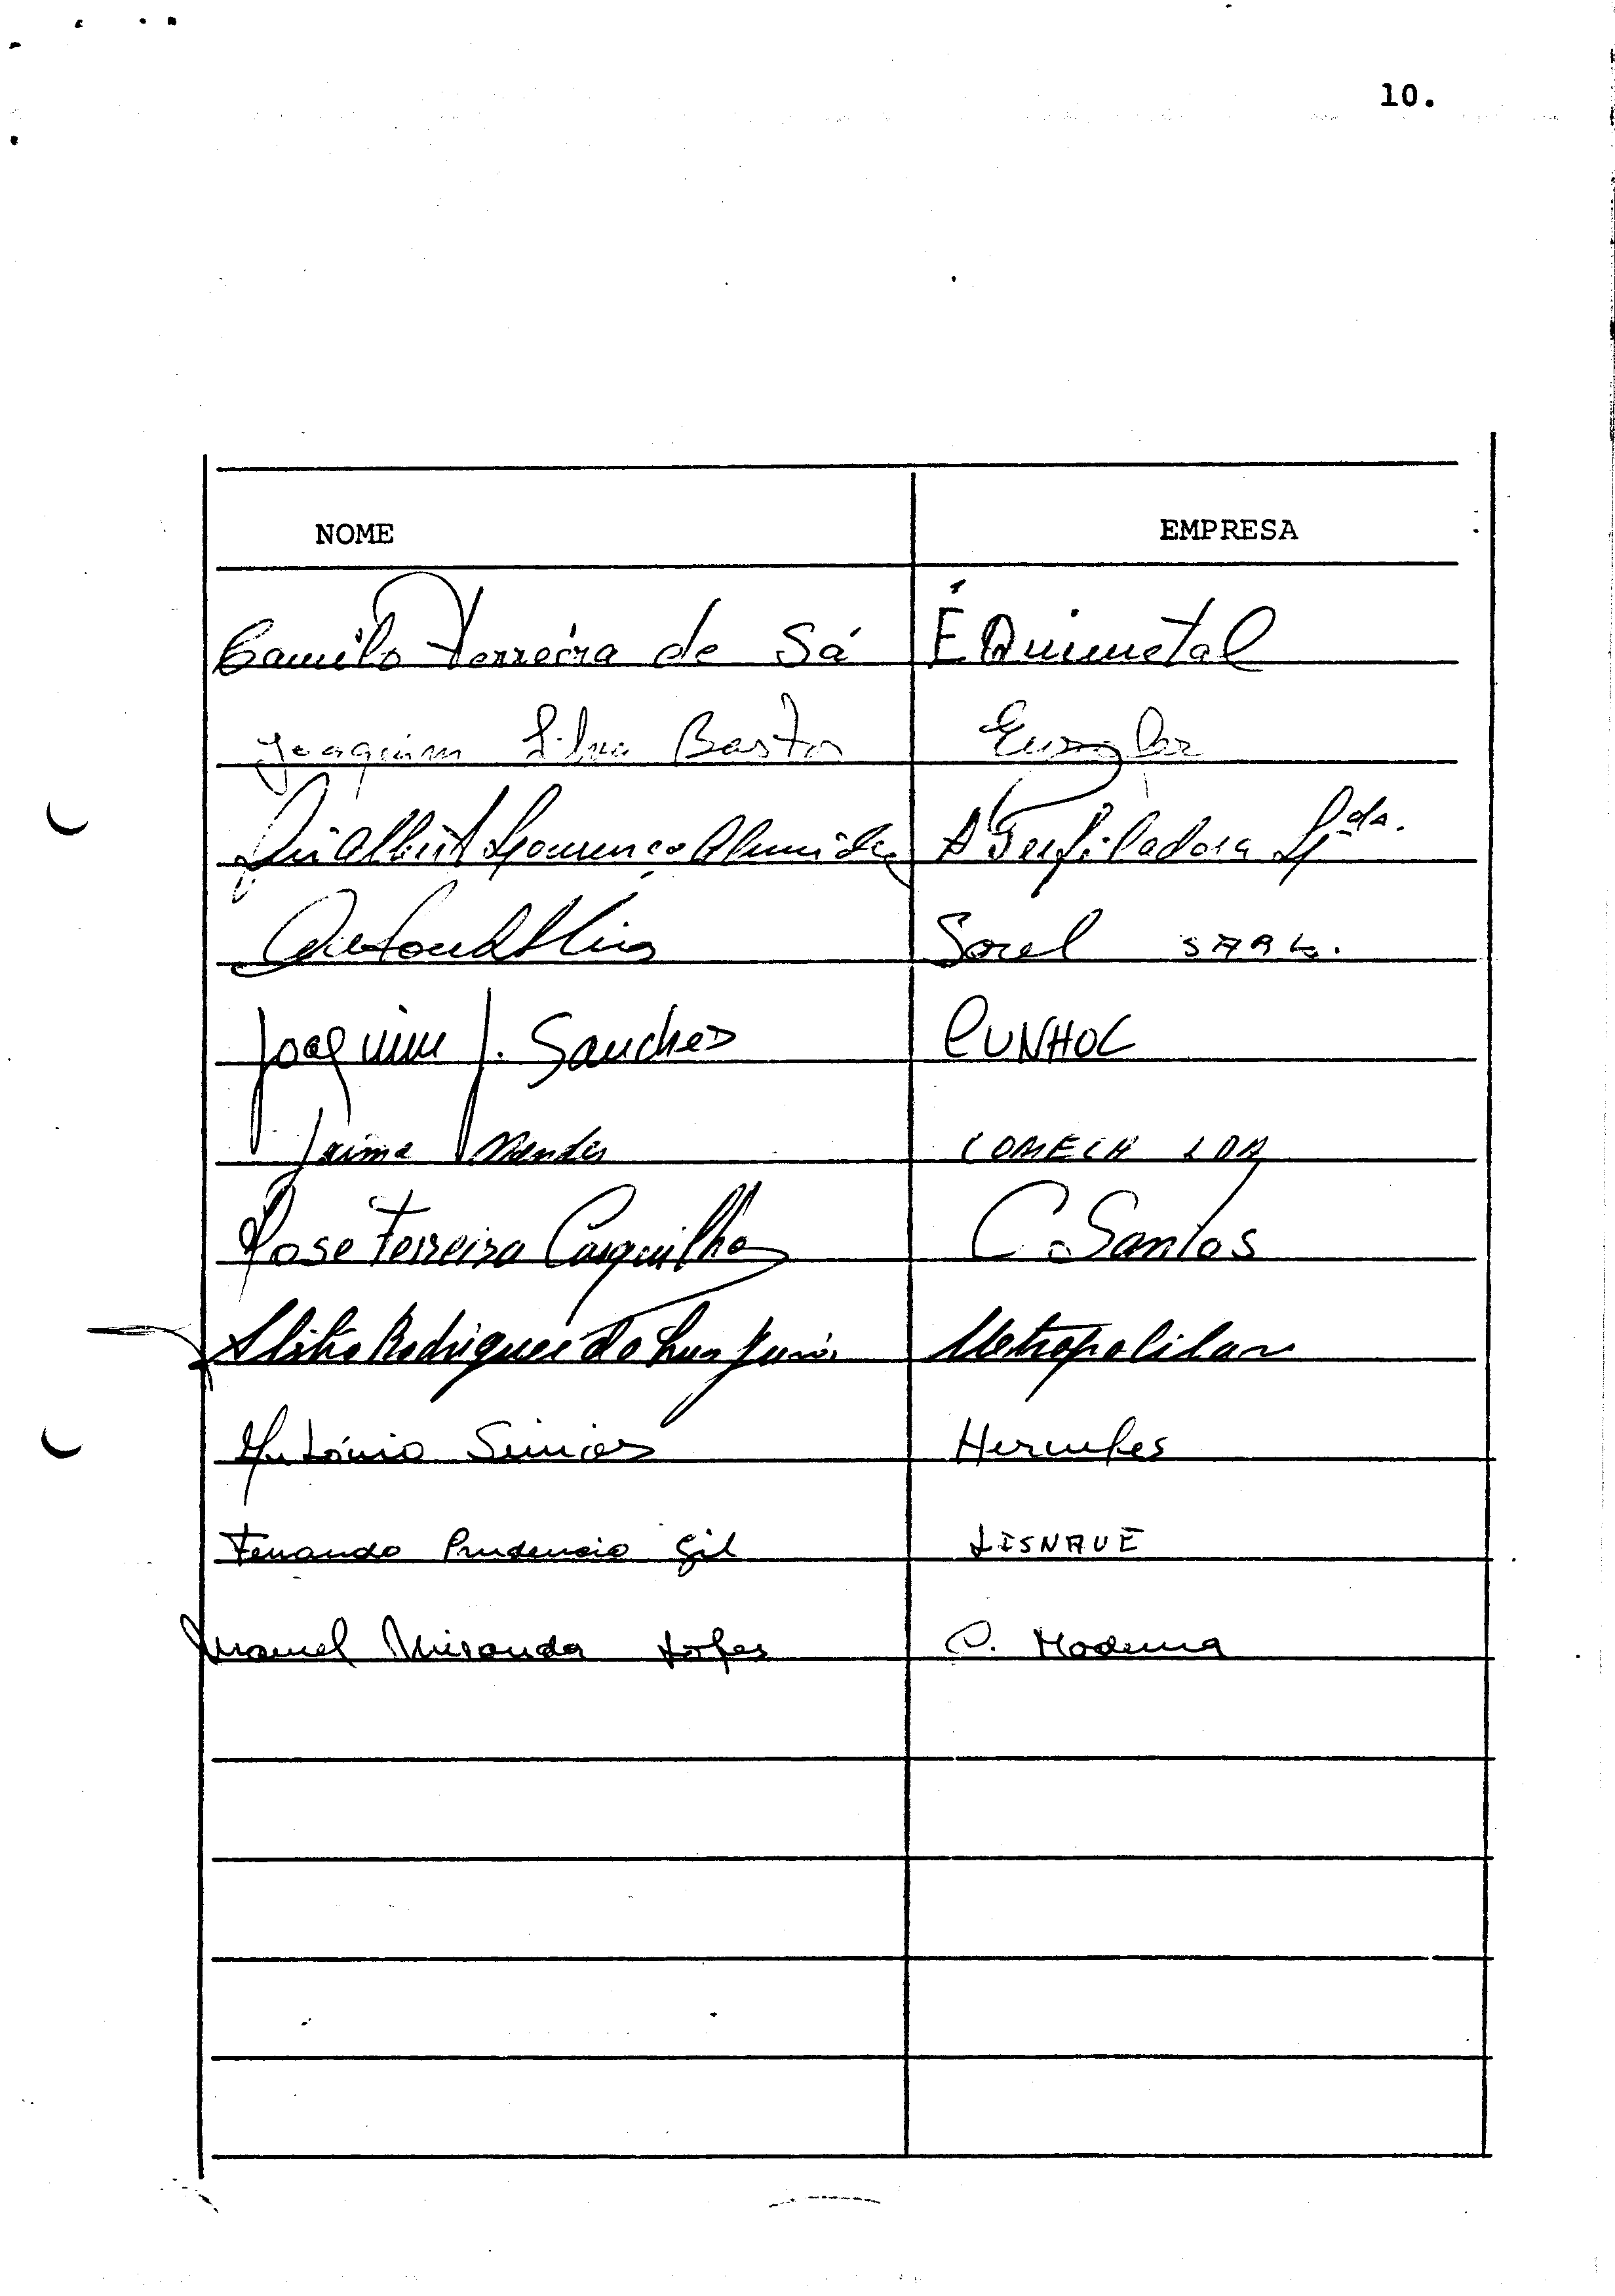 10.
NOME EMPRESA
Camilo Ferreira de Sá ÉQuimetal
Joaquim Silva Bastos
Luis Alberto Lourenço Almeida A Perfiladora Lda.
Sorel SARL.
Joaquim J. Sanches CUNHOL
Jaime Mendes COMECA LDA
Jose Ferreira Casquilho C. Santos
Rodrigues da Metropolitan
António Simões Hercules
Fernando Prudencio Gil LISNAVE
Manuel Miranda Lopes C. Moderna